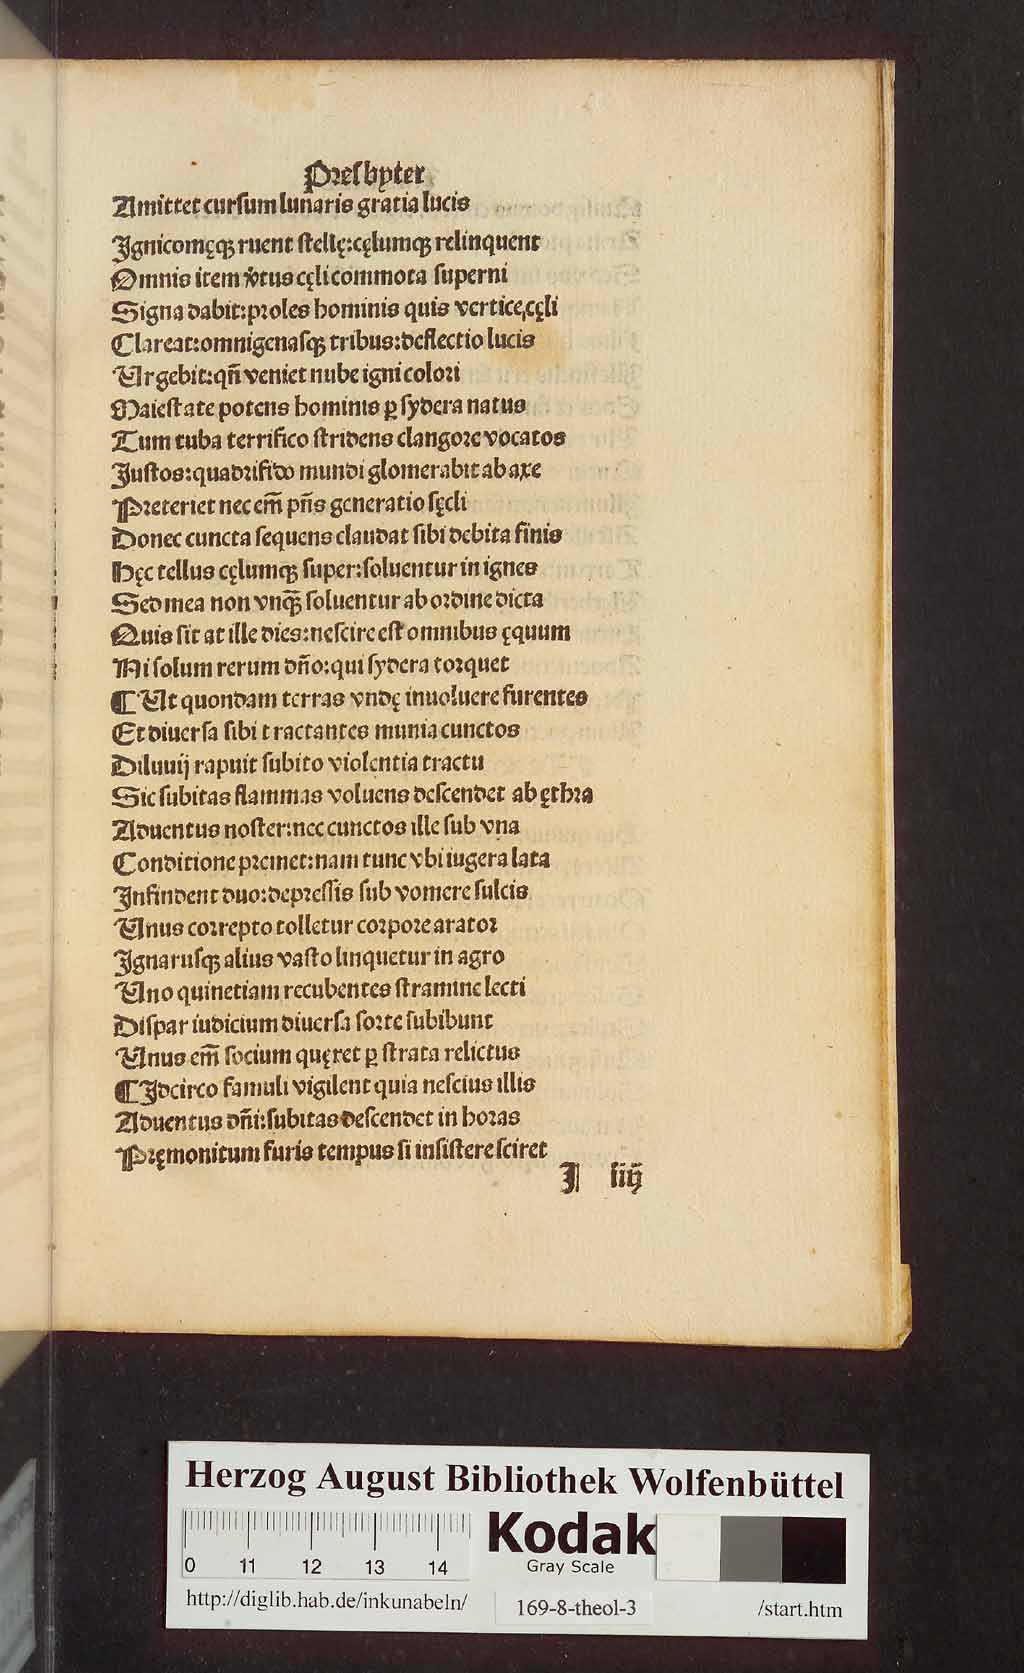 Presbyter
Amittet cursum lunaris gratia lucis
Ignicomęqꝫ ruent stellę:cęlumqꝫ relinquent
Omnis item v̓tus cęli commota superni
Signa dabit:proles hominis quis vertice cęli
Clareat:omnigenasqꝫ tribus:deflectio lucis
Urgebit:qn̄ veniet nube igni colori
Maiestate potens hominis ꝑ sydera natus
Tum tuba terrifico stridens clangore vocatos
Iustos:quadrifido mundi glomerabit ab axe
Preteriet nec em̄ pn̄s generatio sęcli
Donec cuncta sequens claudat sibi debita finis
Hęc tellus cęlumqꝫ super:soluentur in ignes
Sed mea non vnqꝫ̄ soluentur ab ordine dicta
Quis sit at ille dies:nescire est omnibus ęquum
Ni solum rerum dn̄o:qui sydera torquet
¶ Ut quondam terras vndę inuoluere furentes
Et diuersa sibi tractantes munia cunctos
Diluuij rapuit subito violentia tractu
Sic subitas flammas voluens descendet ab ęthra
Aduentus noster:nec cunctos ille sub vna
Conditione premet:nam tunc vbi iugera lata
Infindent duo:depressis sub vomere sulcis
Unus correpto tolletur corpore arator
Ignarusqꝫ alius vasto linquetur in agro
Uno quinetiam recubentes stramine lecti
Dispar iudicium diuersa sorte subibunt
Unus em̄ socium quęret ꝑ strata relictus
¶ Idcirco famuli vigilent quia nescius illis
Aduentus dn̄i:subitas descendet in horas
Pręmonitum furis tempus si insistere sciret
I iiij
Herzog August Bibliothek Wolfenbüttel
0 11 12 13 14
Kodak
Gray Scale
http://diglib.hab.de/inkunabeln/ 169-8-theol-3 /start.htm